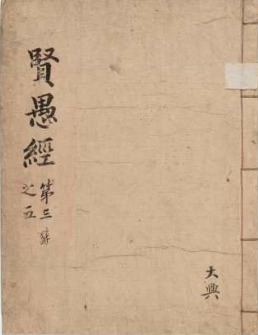 賢愚經
第三
之五
大興